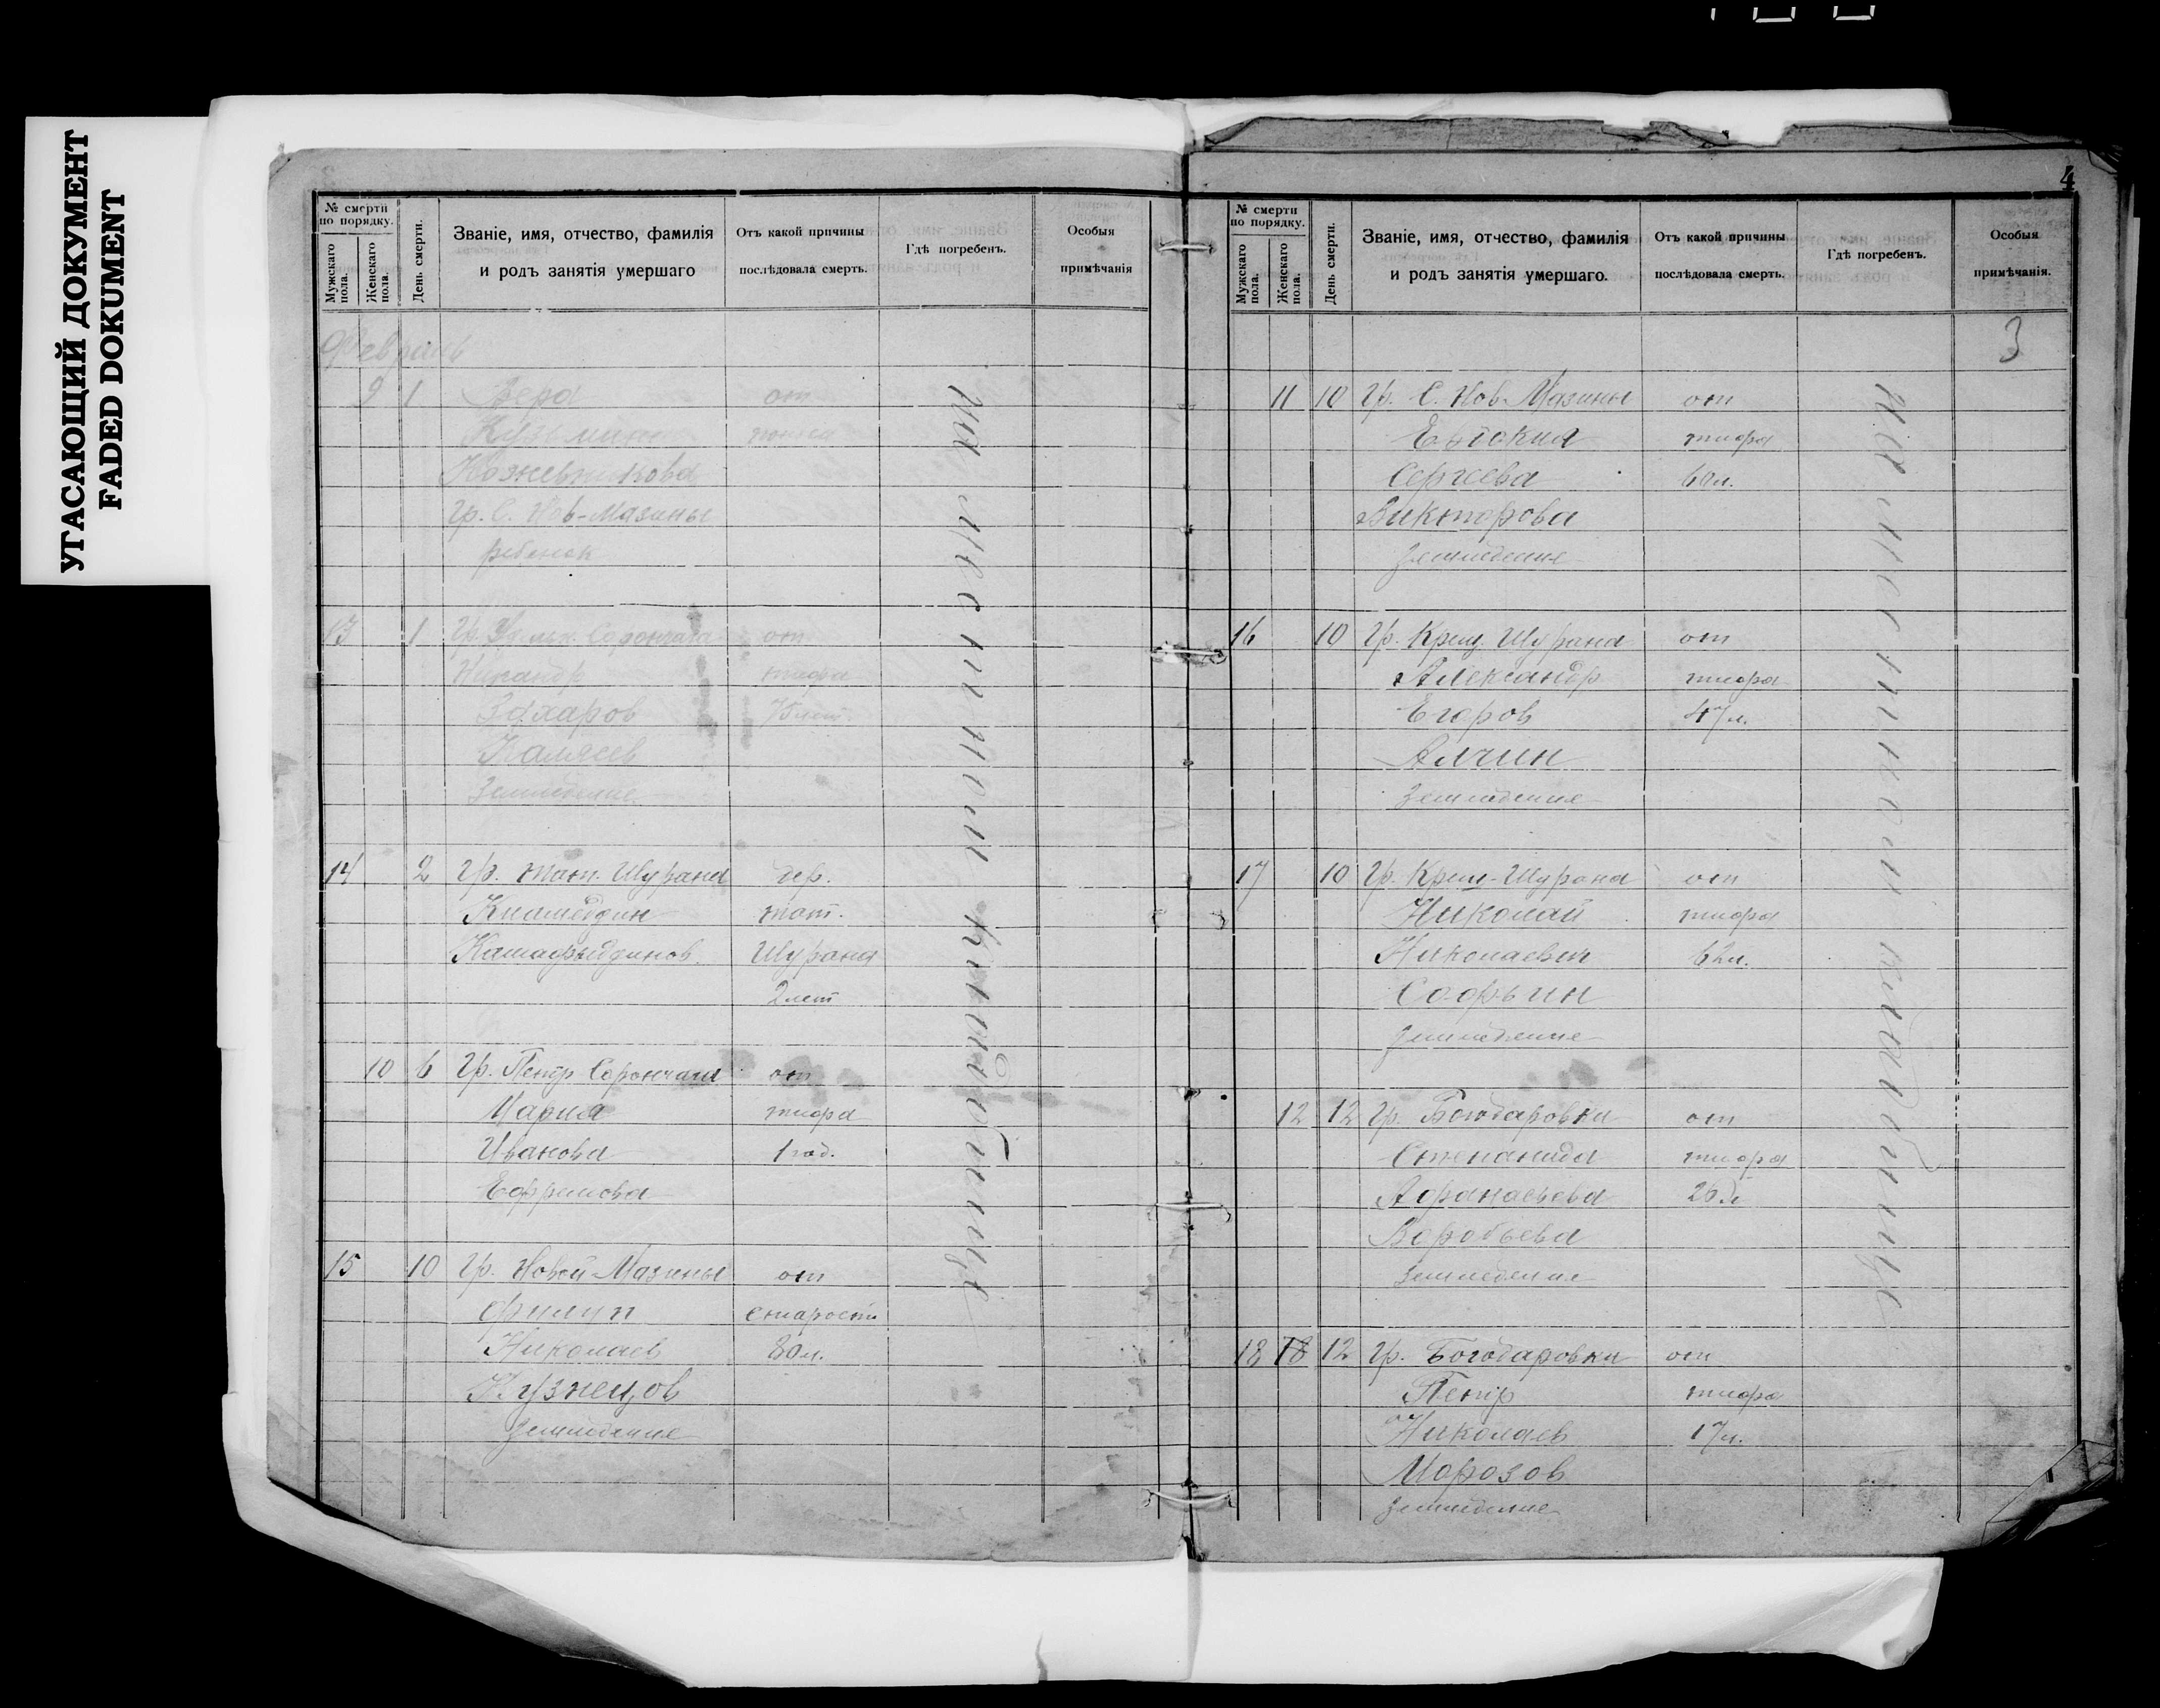 УГАСАЮЩИЙ ДОКУМЕНТ
FADED DOKUMENT
№ смерти по порядку.
Мужскаго пола.
Женскаго пола.
День смерти.
Званіе, имя, отчество, фамилія
и родъ занятія умершаго
Отъ какой причины
послѣдовала смерть.
Гдѣ погребенъ.
Особыя
примѣчанія
Февраль
9 1 Вера от
Кузьмин
Кожевникова
Гр. С. Нов-Мазины
ребенок
13 1 Гр. Удельн. Сарончага от
Никандр тифа
Захаров 75 лет.
Камаев
Земледелие
14 2 Гр. тат. Шурана дер.
Киамеддин тат.
Камафиддинов. Шурана
2 лет
10 6 Гр. Петр Сарончага от
Мария тифа
Иванова 1 год.
Ефремова
15 10 Гр. Новой-Мазины от
Филип старости
Николаев 80 л.
Кузнецов
Земледелие
на местном кладбище
4
№ смерти по порядку.
Мужскаго пола.
Женскаго пола.
День смерти.
Званіе, имя, отчество, фамилія
и родъ занятія умершаго.
Отъ какой причины
послѣдовала смерть.
Гдѣ погребенъ.
Особыя
примѣчанія.
3
11 10 Гр. С. Нов-Мазины от
Евдокия тифа
Сергеева 60 л.
Викторова
Земледелие
16 10 Гр. Крещ. Шурана от
Александр тифа
Егоров 47 л.
Алчин
Земледелие
17 10 Гр. Крещ-Шурана от
Николай тифа
Николаевич 62 л.
Софьин
Земледелие
12 12 Гр. Богодаровки от
Степанида тифа
Афанасьева 26 л.
Воробьева
Земледелие
18 18 12 Гр. Богодаровки от
Петр тифа
Николаев 17 л.
Морозов
Земледелие
на местном кладбище